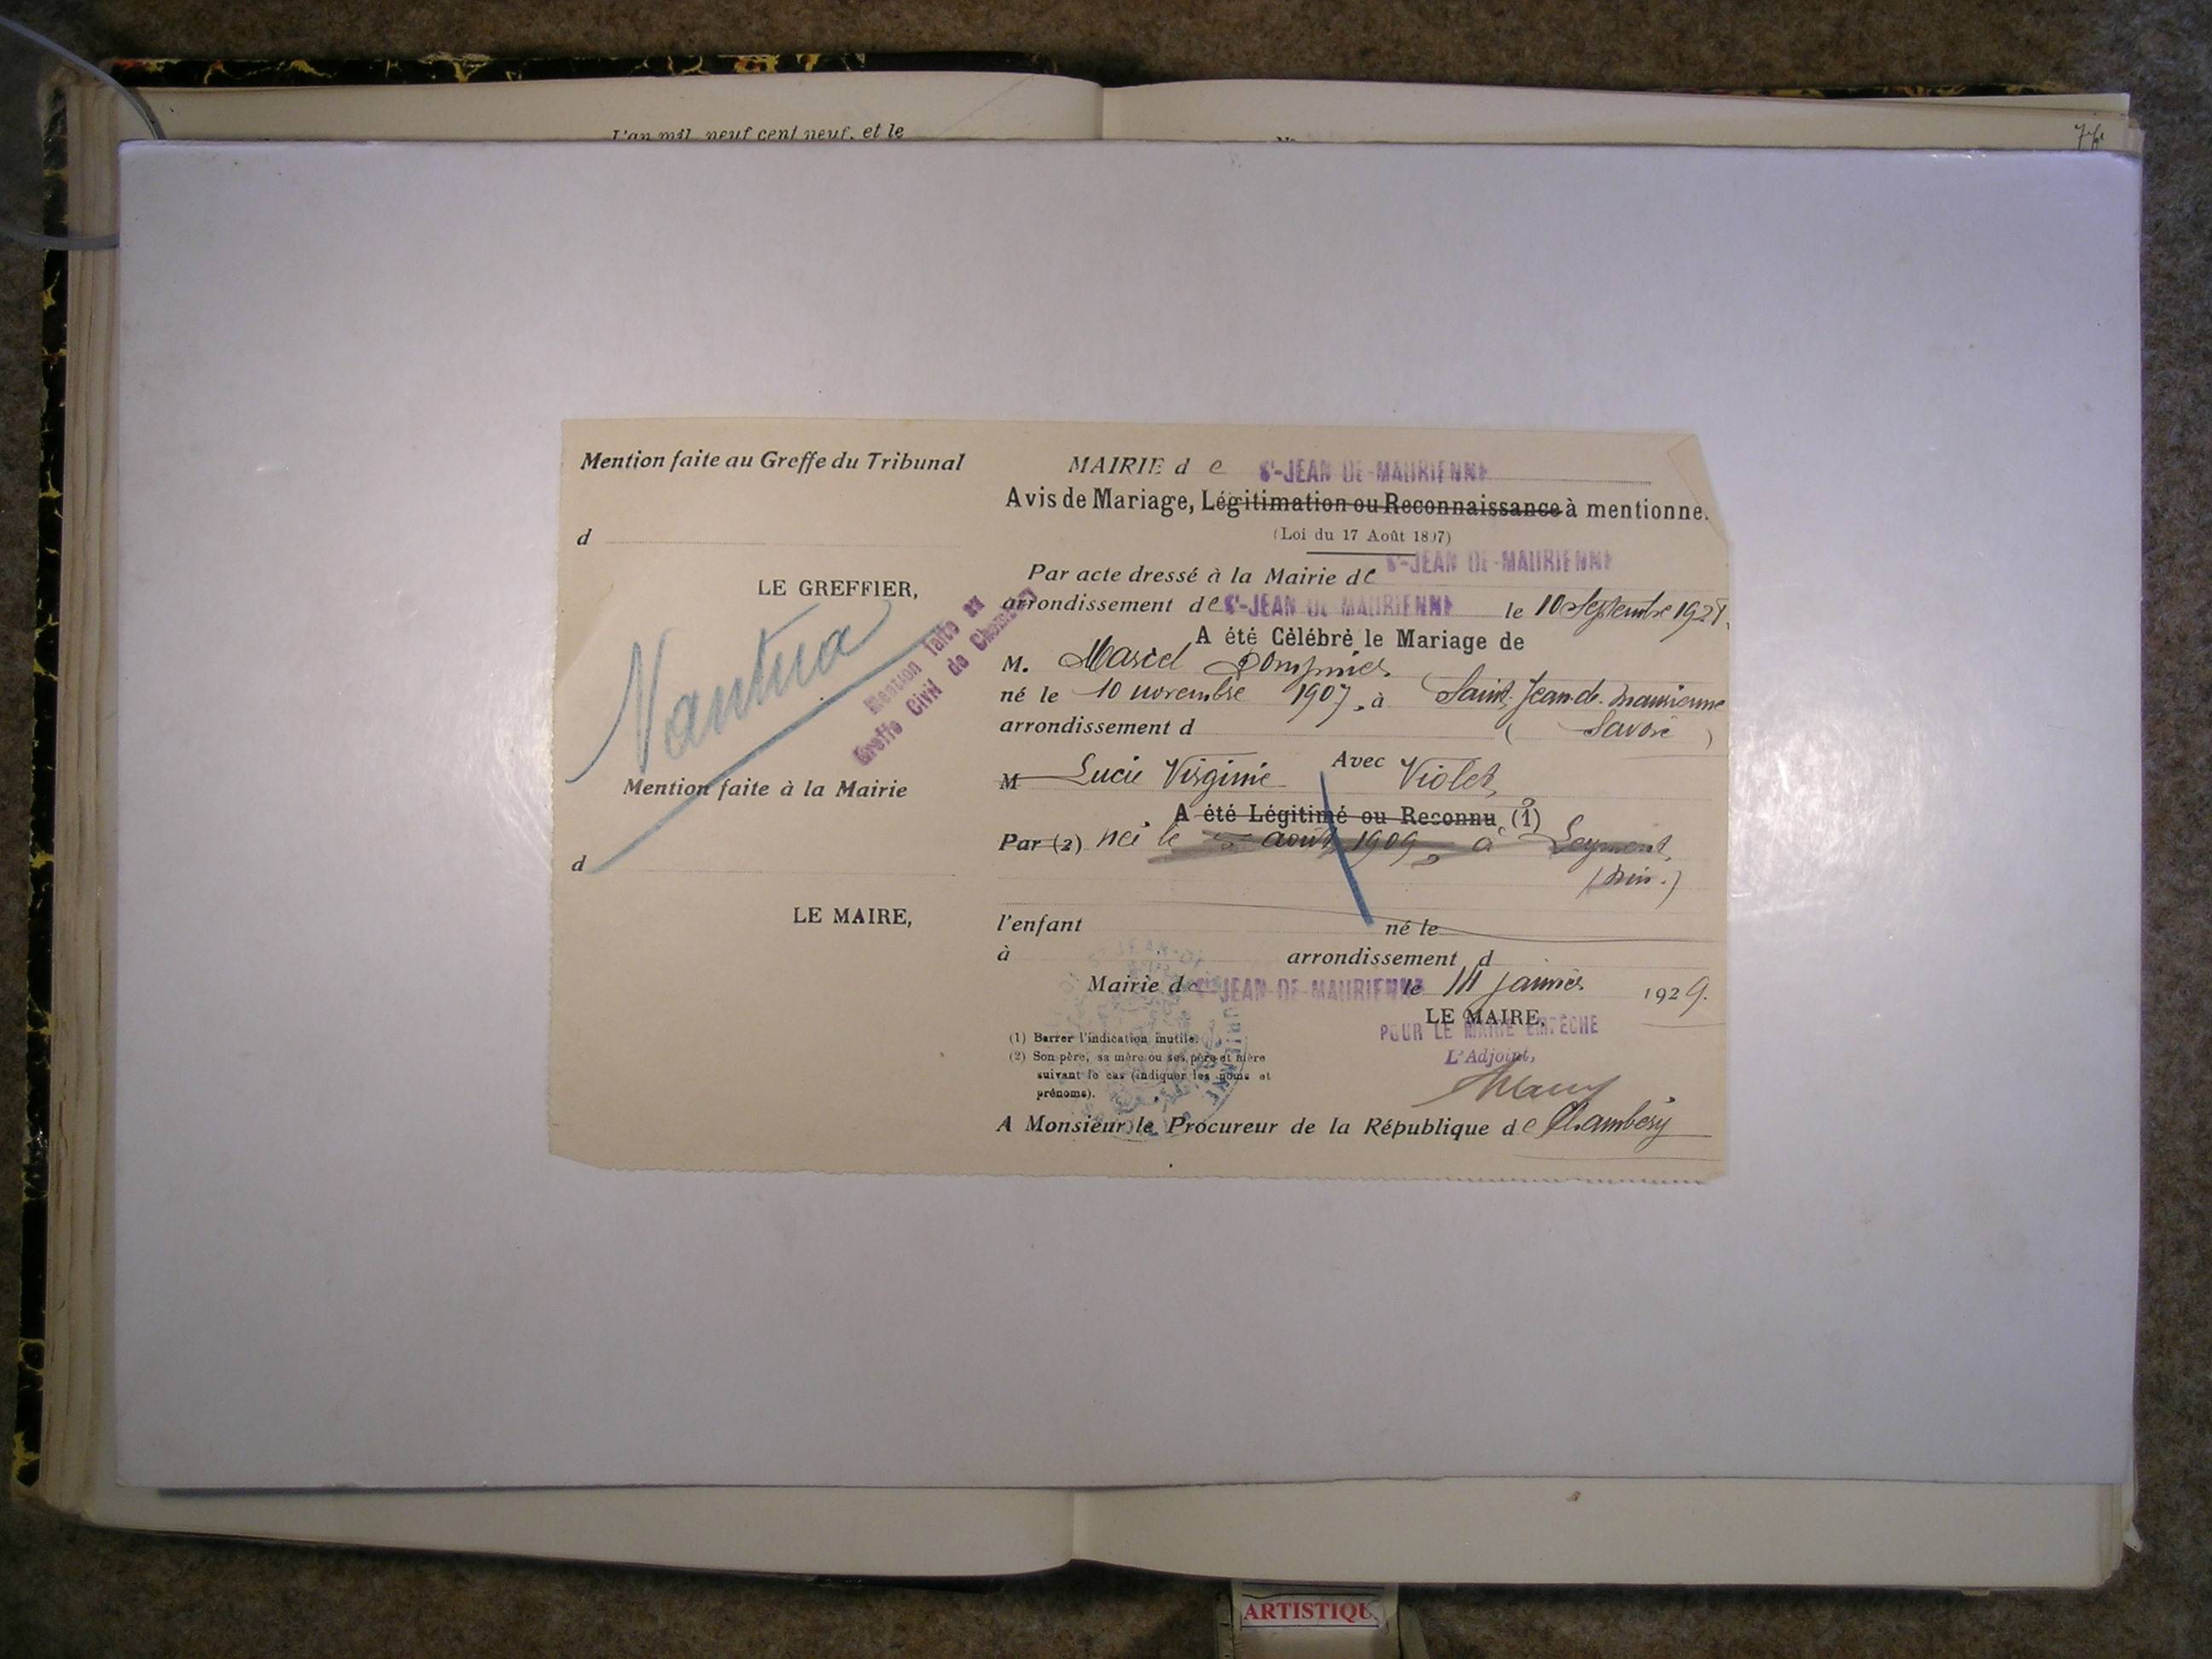 L'an mil neuf cent neuf, et le
Mention faite au Greffe du Tribunal
d
LE GREFFIER,
Nantua
Mention faite au
Greffe Civil de Chambéry
Mention faite à la Mairie
d
LE MAIRE,
MAIRIE de St-JEAN-DE-MAURIENNE
Avis de Mariage, Légitimation ou Reconnaissance à mentionne.
(Loi du 17 Août 1897)
Par acte dressé à la Mairie de St-JEAN-DE-MAURIENNE
arrondissement de St-JEAN-DE-MAURIENNE le 10 Septembre 1928.
A été Célébré le Mariage de
M. Marcel
né le 10 novembre 1907, à Saint-Jean-de-Maurienne
arrondissement d (Savoie)
Avec
M Lucie Virginie Violet,
A été Légitimé ou Reconnu (1)
Par (2) née le 5 août 1909, à Leyment,
(Ain.)
l'enfant né le
à arrondissement d
Mairie de St-JEAN-DE-MAURIENNE le 14 janvier 1929.
LE MAIRE,
POUR LE MAIRE EMPÊCHÉ
L'Adjoint,
(1) Barrer l'indication inutile.
(2) Son père, sa mère ou ses père et mère
suivant le cas (indiquer les noms et
prénoms).
A Monsieur le Procureur de la République de Chambéry
ARTISTIQU